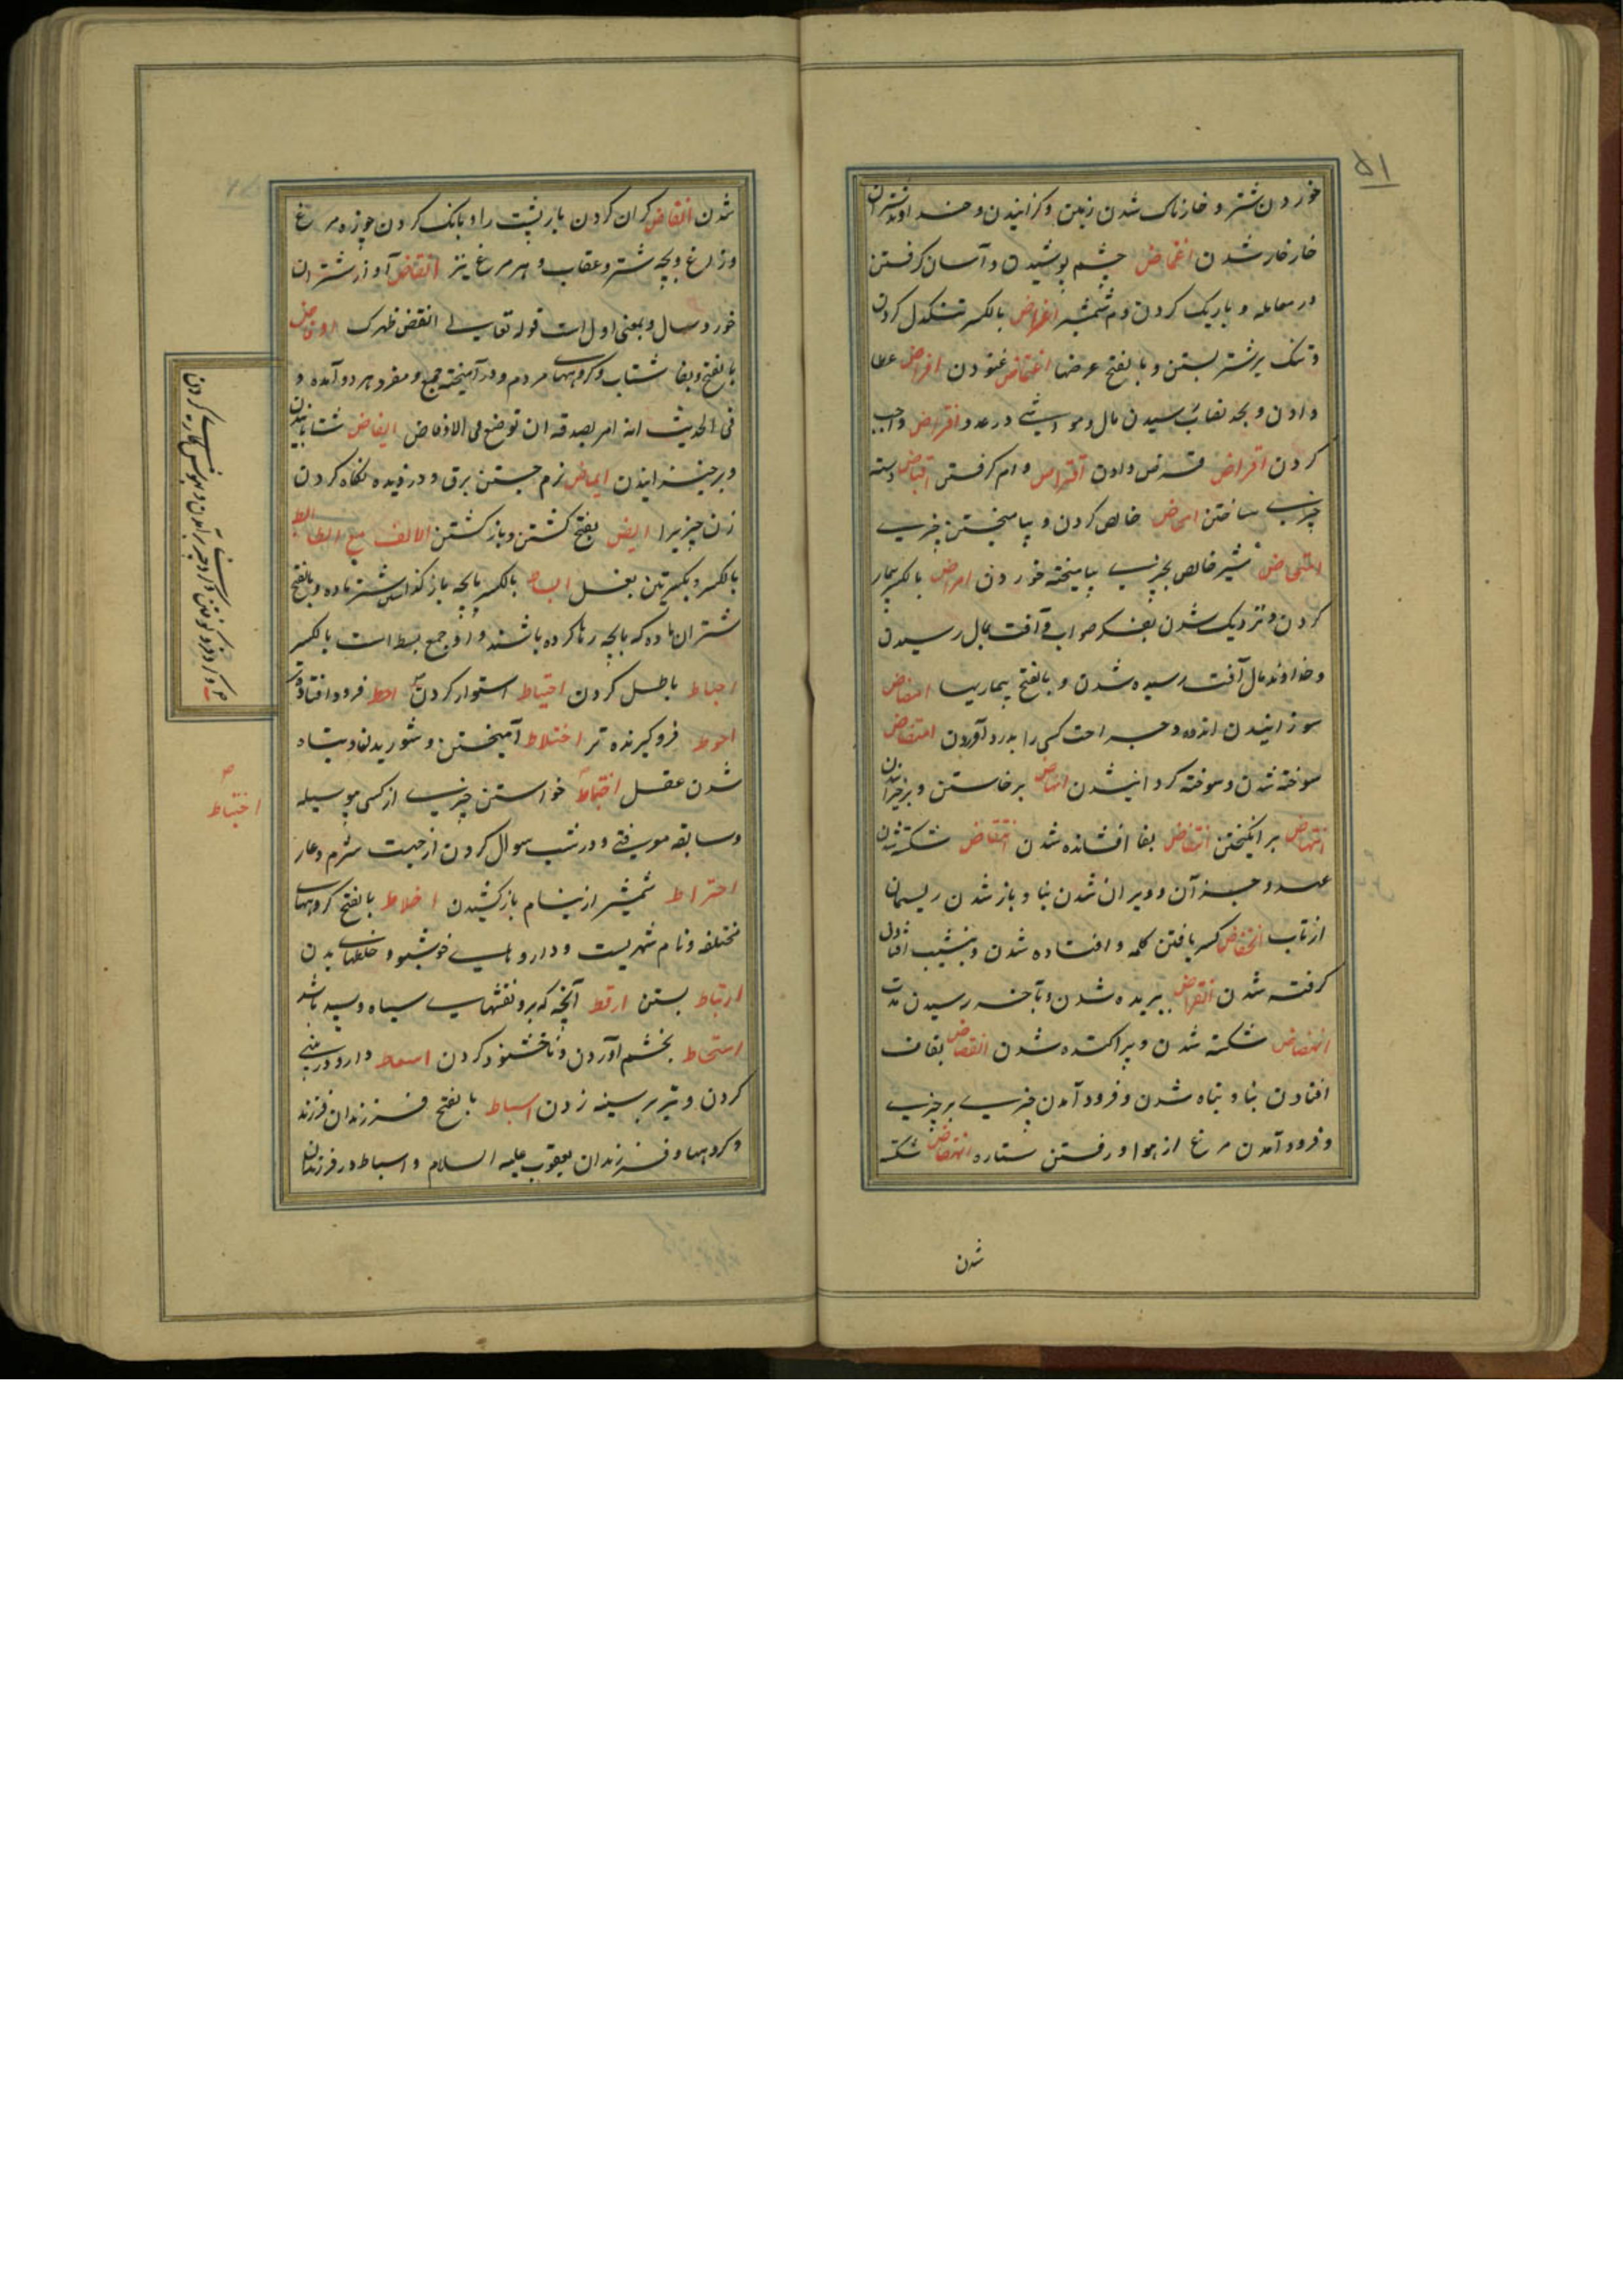 ۵۱
خوردن شتر و خارناک شدن زمین و کزانیدن و خداوند شتران
خار خار شدن اغماض چشم پوشیدن و آسان کرفتن
در معامله و باریک کردن دم شمشیر اغراض بالکسر تنکدل کردن
و تنک بر شتر بستن و بالفتح غرضها اغتماض غنودن افراض عطا
دادن و بحد نصاب رسیدن مال و مواشی در عدد افتراض واجب
کردن اقراض قرض دادن اقتراض وام کرفتن اقباض دسته
چیزی ساختن امحاض خالص کردن و بیامیختن چیزی
امتحاض شیر خالص بچیزی نیامیخته خوردن امراض بالکسر بیمار
کردن و نزدیک شدن بفکر صواب و آفت بمال رسیدن
و خداوند مال آفت رسیده شدن و بالفتح بیماریها امضاض
سوزانیدن اندوه و جراحت کسی را بدرد آوردن امتضاض
سوخته شدن و سوخته کردانیدن انهاض برخاستن و برخیزانیدن
انتهاض برانکیختن انتفاض بفا افشانده شدن انتقاض شکسته شدن
عهد و جز آن و ویران شدن بنا و باز شدن ریسمان
از تاب انخفاض کسر یافتن کلمه و افتاده شدن و بنشیب افتادن
کرفته شدن انقراض بریده شدن و بآخر رسیدن مدت
انفضاض شکسته شدن و پراکنده شدن انقضاض بقاف
افتادن بنا و تباه شدن و فرود آمدن چیزی بر چیزی
و فرود آمدن مرغ از هوا و رفتن ستاره انهضاض شکسته
شدن
شدن انقاض کران کردن بار پشت را و بانک کردن چوزه مرغ
و زاغ و بچه شتر و عقاب و هر مرغ نیز انقاض آواز شتران
خورد سال و بمعنی اول است قوله تعالی انقض ظهرک اوفاض
بالفتح و بفا شتاب و کروههای مردم و درآمیخته جمع و مفرد هر دو آمده و
فی الحدیث انه امر بصدقه ان توضع فی الاوفاض ایفاض شتابانیدن
و برخیزانیدن ایماض نرم جستن برق و دزدیده نکاه کردن
زن چیزیرا ایض بفتح کشتن و بازکشتن الالف مع الطا ابط
بالکسر و بکسرتین بغل ابساط بالکسر با بچه باز کذاشتن شتر ماده و بالفتح
شتران ماده که با بچه رها کرده باشند و او جمع بسط است بالکسر
احباط باطل کردن احتیاط استوار کردن احط فرود افتاده تر
احوط فرو کیرنده تر اختلاط آمیختن و شوریدن و تباه
شدن عقل اختباط خواستن چیزی از کسی بی وسیله
و سابقه معرفتی و در شب سوال کردن از جهت شرم و عار
اختراط شمشیر از نیام باز کشیدن اخلاط بالفتح کروههای
مختلفه و نام شهریست و داروهای خوشبو و خلطهای بدن
ارتباط بستن ارقط آنچه که برو نقشهای سیاه و سپید باشد
اسخاط بخشم آوردن و ناخشنود کردن اسعاط دارو در بینی
کردن و تیر بر سینه زدن اسباط بالفتح فرزندان فرزند
و کروهها و فرزندان یعقوب علیه السلام و اسباط در فرزندان
اختباط